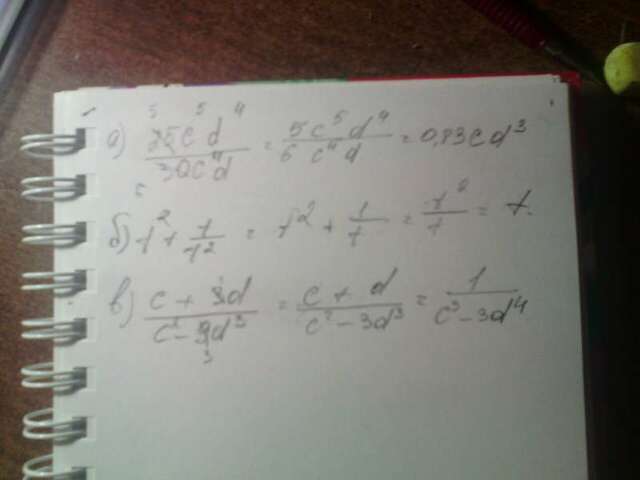 а) 25c⁵d⁴/30c⁴d = 5c⁵d⁴/6c⁴d = 0,83cd³
б) t² + t/t² = t² + 1/t = t²/t = t.
в) c + 3d/c² - 9d³ = c + d/c² - 3d³ = 1/c³ - 3d⁴